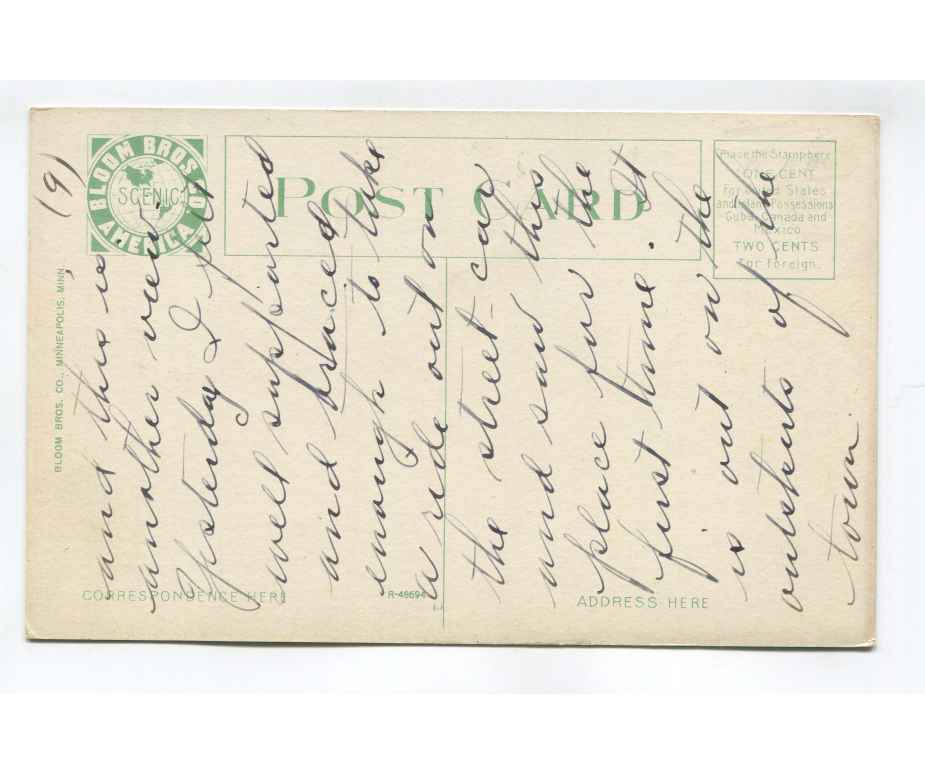 (9)
and this is
another view.
Yesterday I felt
well supported
and braced
enough to take
a ride out on
the street-car
and saw this
place for the
first time. It
is out on the
outskirts of the
town
BLOOM BROS. CO.
SCENIC
AMERICA
POST CARD
Place the Stamp here
ONE CENT
For United States
and Island Possessions
Cuba, Canada and
Mexico
TWO CENTS
For Foreign.
BLOOM BROS. CO., MINNEAPOLIS, MINN.
CORRESPONDENCE HERE
R-49694
ADDRESS HERE